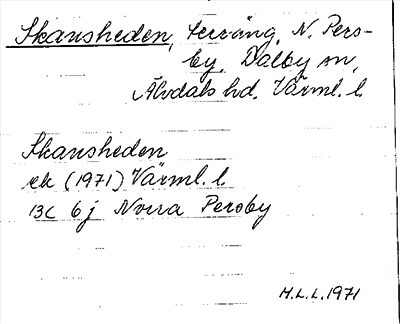 Skansheden, terräng, N. Pers-
by, Dalby sn,
Älvdals hd. Värml. l.
Skansheden
ek (1971) Värml. l.
13C 6j Norra Persby
H.L.L. 1971